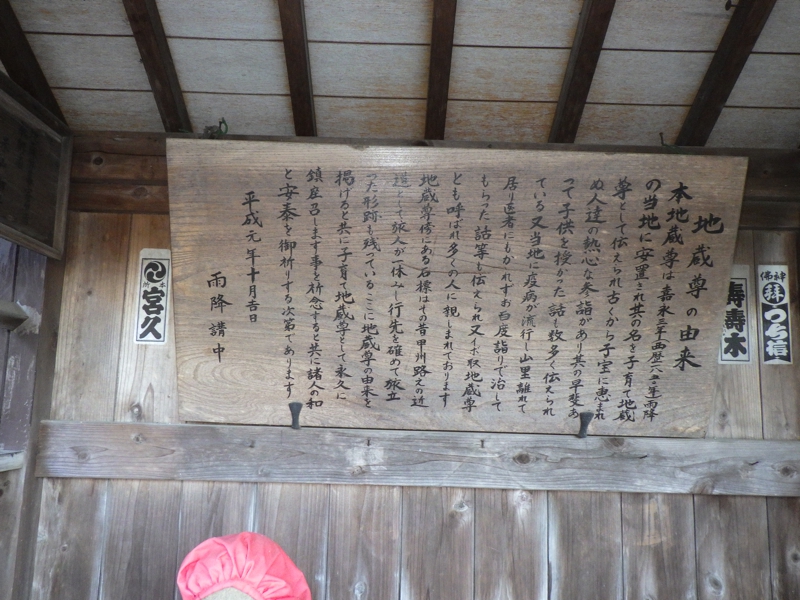 地蔵尊の由来
本地蔵尊は嘉永三年西歴一八五〇年雨降
の当地に安置され其の名を子育て地蔵
尊として伝えられ古くから子宝に恵まれ
ぬ人達の熱心な参詣があり其の早斐あ
って子供を授かった話も数多く伝えられ
ている又当地に疫病が流行し山里離れて
居り医者にもかゝれずお百度詣りで治して
もらった話等も伝えられ又イボ取地蔵尊
とも呼ばれ多くの人に親しまれております
地蔵尊傍にある石標はその昔甲州路えの近
道として旅人が一休みし行先を確めて旅立
った形跡も残っているここに地蔵尊の由来を
掲げると共に子育て地蔵尊として永久に
鎮座召します事を祈念すると共に諸人の和
と安泰を御祈りする次第であります
平成元年十月吉日
雨降講中
宮久
壽木
神佛
拝